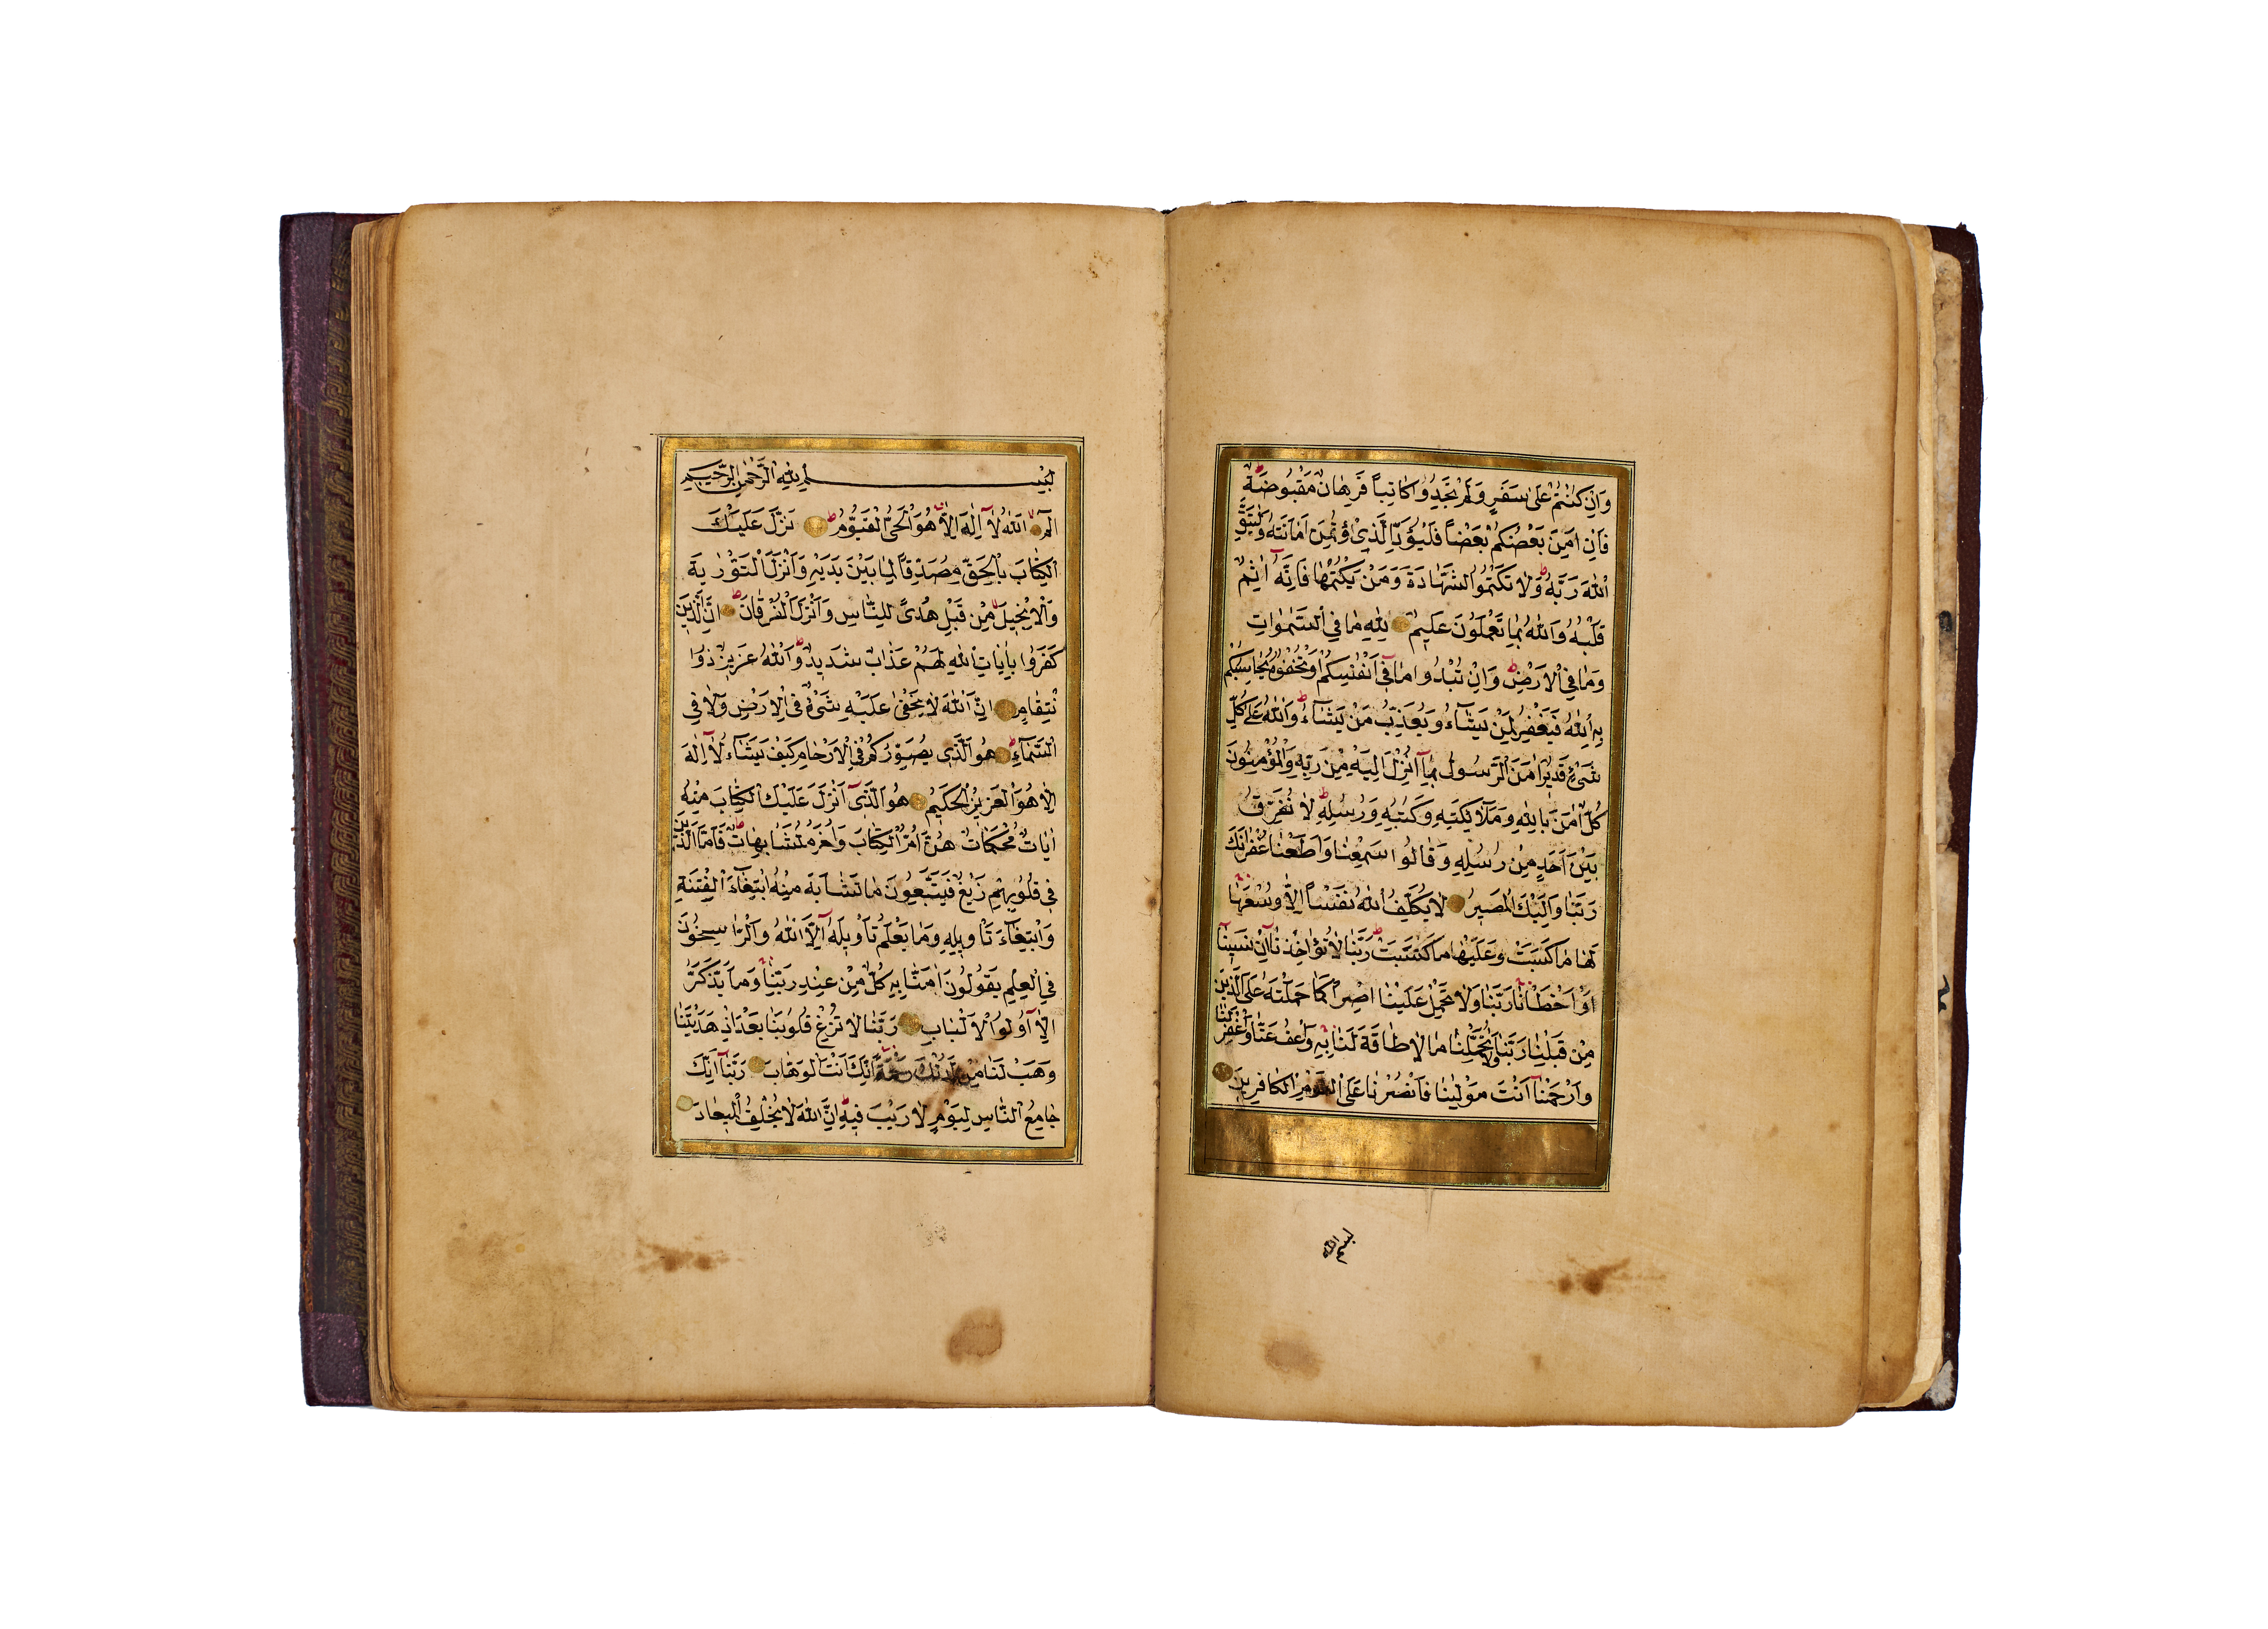 وَاِنْ كُنْتُمْ عَلٰى سَفَرٍ وَلَمْ تَجِدُوا كَاتِباً فَرِهَانٌ مَقْبُوضَةٌ ط
فَاِنْ اَمِنَ بَعْضُكُمْ بَعْضاً فَلْيُؤَدِّ الَّذِي اؤْتُمِنَ اَمَانَتَهُ وَلْيَتَّقِ
اللّٰهَ رَبَّهُ ط وَلَا تَكْتُمُوا الشَّهَادَةَ وَمَنْ يَكْتُمْهَا فَاِنَّهُ اٰثِمٌ
قَلْبُهُ وَاللّٰهُ بِمَا تَعْمَلُونَ عَلِيمٌ لِلّٰهِ مَا فِي السَّمٰوَاتِ
وَمَا فِي الْاَرْضِ ط وَاِنْ تُبْدُوا مَا فِي اَنْفُسِكُمْ اَوْ تُخْفُوهُ يُحَاسِبْكُمْ
بِهِ اللّٰهُ فَيَغْفِرُ لِمَنْ يَشَاءُ وَيُعَذِّبُ مَنْ يَشَاءُ ط وَاللّٰهُ عَلٰى كُلِّ
شَيْءٍ قَدِيرٌ اٰمَنَ الرَّسُولُ بِمَا اُنْزِلَ اِلَيْهِ مِنْ رَبِّهِ وَالْمُؤْمِنُونَ
كُلٌّ اٰمَنَ بِاللّٰهِ وَمَلَائِكَتِهِ وَكُتُبِهِ وَرُسُلِهِ ط لَا نُفَرِّقُ
بَيْنَ اَحَدٍ مِنْ رُسُلِهِ وَقَالُوا سَمِعْنَا وَاَطَعْنَا غُفْرَانَكَ
رَبَّنَا وَاِلَيْكَ الْمَصِيرُ لَا يُكَلِّفُ اللّٰهُ نَفْساً اِلَّا وُسْعَهَا
لَهَا مَا كَسَبَتْ وَعَلَيْهَا مَا كْتَسَبَتْ ط رَبَّنَا لَا تُؤَاخِذْنَا اِنْ نَسِينَا
اَوْ اَخْطَاْنَا رَبَّنَا وَلَا تَحْمِلْ عَلَيْنَا اِصْراً كَمَا حَمَلْتَهُ عَلَى الَّذِينَ
مِنْ قَبْلِنَا رَبَّنَا وَلَا تُحَمِّلْنَا مَا لَا طَاقَةَ لَنَا بِهِ وَاعْفُ عَنَّا وَاغْفِرْ لَنَا
وَارْحَمْنَا اَنْتَ مَوْلٰينَا فَانْصُرْنَا عَلَى الْقَوْمِ الْكَافِرِينَ
بسم الله
بِسْمِ اللّٰهِ الرَّحْمٰنِ الرَّحِيمِ
الٓمٓ اَللّٰهُ لَا اِلٰهَ اِلَّا هُوَ الْحَيُّ الْقَيُّومُ ط نَزَّلَ عَلَيْكَ
الْكِتَابَ بِالْحَقِّ مُصَدِّقاً لِمَا بَيْنَ يَدَيْهِ وَاَنْزَلَ التَّوْرٰيةَ
وَالْاِنْجِيلَ مِنْ قَبْلُ هُدًى لِلنَّاسِ وَاَنْزَلَ الْفُرْقَانَ ط اِنَّ الَّذِينَ
كَفَرُوا بِاٰيَاتِ اللّٰهِ لَهُمْ عَذَابٌ شَدِيدٌ ط وَاللّٰهُ عَزِيزٌ ذُوا
نْتِقَامٍ اِنَّ اللّٰهَ لَا يَخْفٰى عَلَيْهِ شَيْءٌ فِي الْاَرْضِ وَلَا فِي
السَّمَاءِ ط هُوَ الَّذِي يُصَوِّرُكُمْ فِي الْاَرْحَامِ كَيْفَ يَشَاءُ لَا اِلٰهَ
اِلَّا هُوَ الْعَزِيزُ الْحَكِيمُ هُوَ الَّذِي اَنْزَلَ عَلَيْكَ الْكِتَابَ مِنْهُ
اٰيَاتٌ مُحْكَمَاتٌ هُنَّ اُمُّ الْكِتَابِ وَاُخَرُ مُتَشَابِهَاتٌ ط فَاَمَّا الَّذِينَ
فِي قُلُوبِهِمْ زَيْغٌ فَيَتَّبِعُونَ مَا تَشَابَهَ مِنْهُ ابْتِغَاءَ الْفِتْنَةِ
وَابْتِغَاءَ تَاْوِيلِهِ وَمَا يَعْلَمُ تَاْوِيلَهُ اِلَّا اللّٰهُ وَالرَّاسِخُونَ
فِي الْعِلْمِ يَقُولُونَ اٰمَنَّا بِهِ كُلٌّ مِنْ عِنْدِ رَبِّنَا وَمَا يَذَّكَّرُ
اِلَّا اُولُوا الْاَلْبَابِ رَبَّنَا لَا تُزِغْ قُلُوبَنَا بَعْدَ اِذْ هَدَيْتَنَا
وَهَبْ لَنَا مِنْ لَدُنْكَ رَحْمَةً اِنَّكَ اَنْتَ الْوَهَّابُ رَبَّنَا اِنَّكَ
جَامِعُ النَّاسِ لِيَوْمٍ لَا رَيْبَ فِيهِ ط اِنَّ اللّٰهَ لَا يُخْلِفُ الْمِيعَادَ